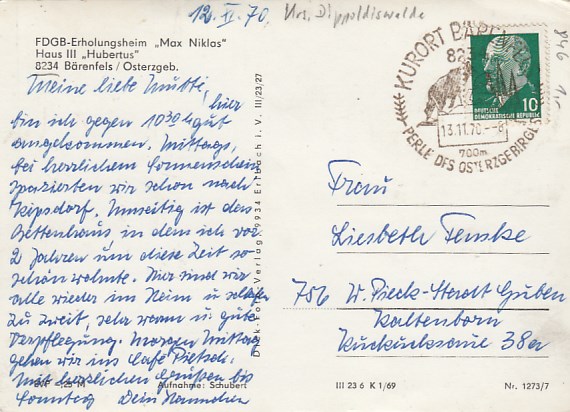 12. XI. 70.
Krs. Dippoldiswalde
FDGB-Erholungsheim „Max Niklas"
Haus III „Hubertus"
8234 Bärenfels / Osterzgeb.
Meine liebe Mutti, hier
bin ich gegen 10 30 gut
angekommen. Mittags,
bei herrlichem Sonnenschein
spazierten wir schon nach
Kipsdorf. Umseitig ist das
Bettenhaus in dem ich vor
2 Jahren um diese Zeit so
schön wohnte. Nur sind wir
alle wieder im Heim u schlafen
zu zweit, sehr warm u gute
Verpflegung. Morgen Mittag
gehen wir ins Café Pietsch.
Mit herzlichen Grüßen bis
Sonntag Dein Hannchen
BVF 125 M Aufnahme: Schubert
Dick-Foto-Verlag, 9934 Erlbach i. V. III/23/27
KURORT BÄRENFELS
13.11.70
700m
PERLE DES OSTERZGEBIRGES
10
DEUTSCHE
DEMOKRATISCHE REPUBLIK
Frau
Liesbeth Femske
756 W. Pieck-Stadt Guben
Kaltenborn
Kuckucksaue 38a
III 23 6 K 1/69
Nr. 1273/7